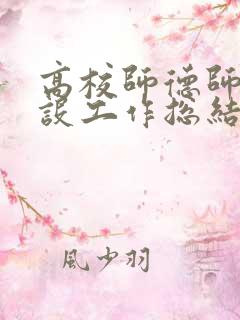 高校師德師
設工作總結
風少羽